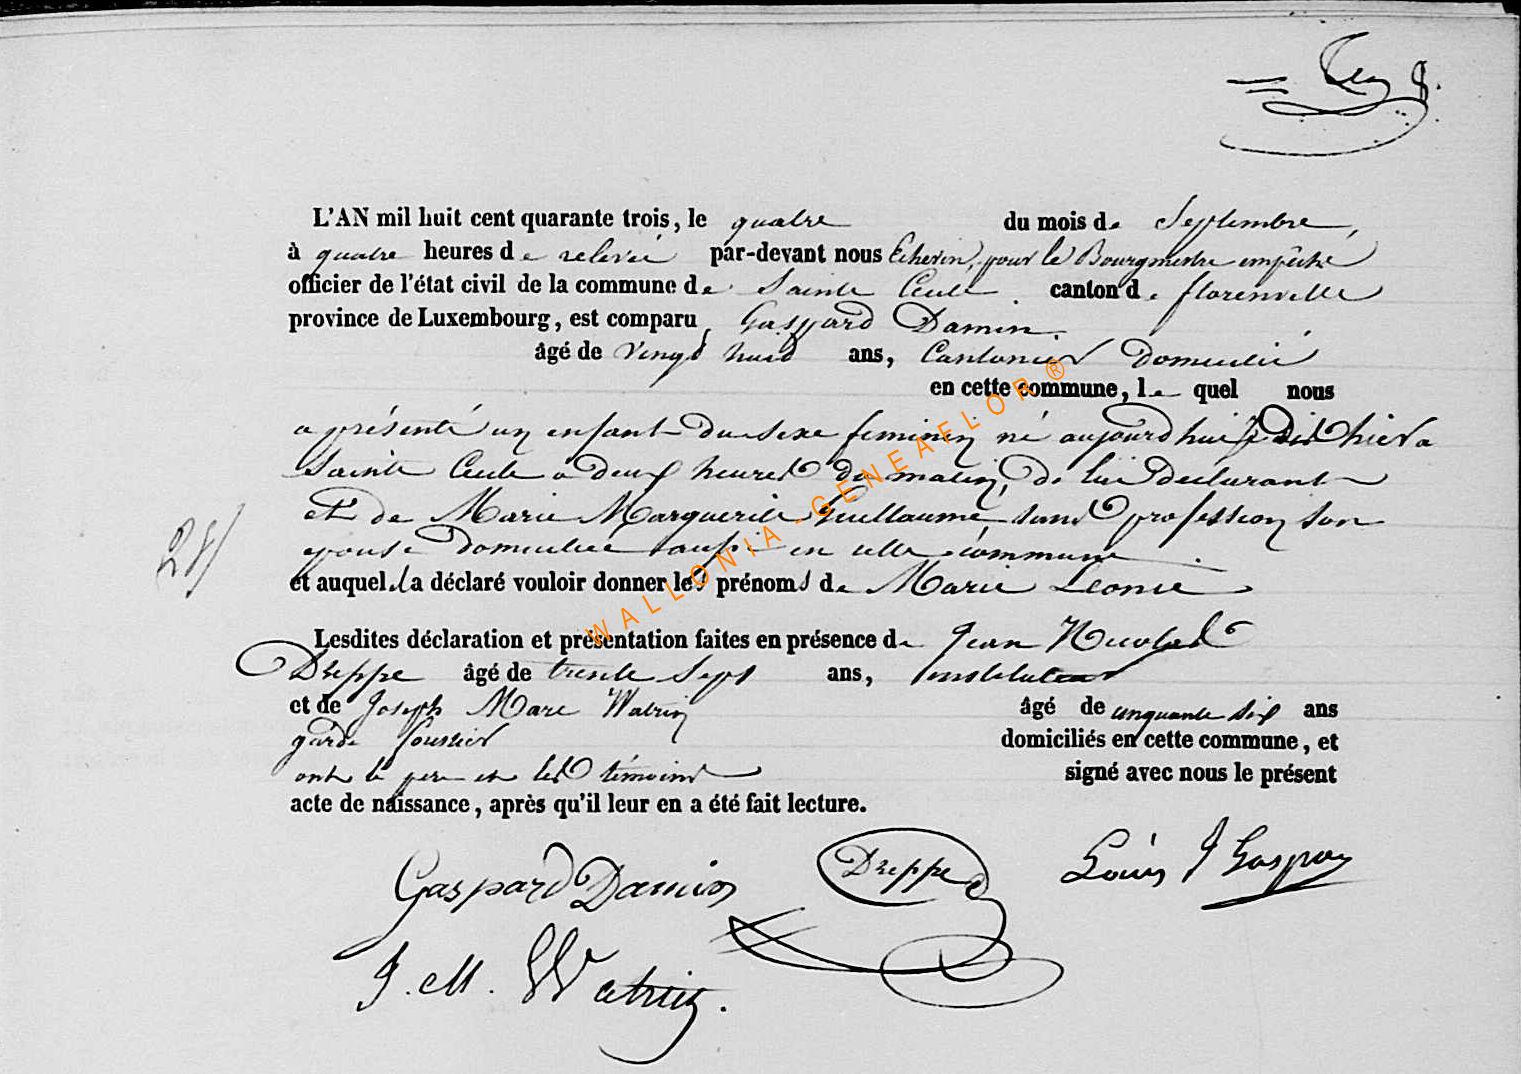 L'AN mil huit cent quarante trois, le quatre du mois de Septembre,
à quatre heures de relevée par-devant nous Echevin, pour le Bourgmestre empêché
officier de l'état civil de la commune de Sainte Cecile canton de florenville
province de Luxembourg, est comparu, Gaspard Damien
âgé de vingt huit ans, Cantonier Domicilié
en cette commune, le quel nous
a présenté un enfant du sexe feminin né aujourd'hui à
Sainte Cecile a deux heures du matin, de lui declarant
et de Marie Marguerite Guillaume, sans profession son
epouse domiciliée aussi en cette commune
et auquel il a déclaré vouloir donner les prénoms de Marie Leonie
Lesdites déclaration et présentation faites en présence de Jean Nicolas
Dreppe âgé de trente sept ans, instituteur
et de Joseph Marc Watrin âgé de cinquante six ans
garde forestier domiciliés en cette commune, et
ont le pere et les témoins signé avec nous le présent
acte de naissance, après qu'il leur en a été fait lecture.
Gaspard Damien Dreppe Louis J Gaspar
J. M. Watrin.
WALLONIA - GENEAFLOR ®